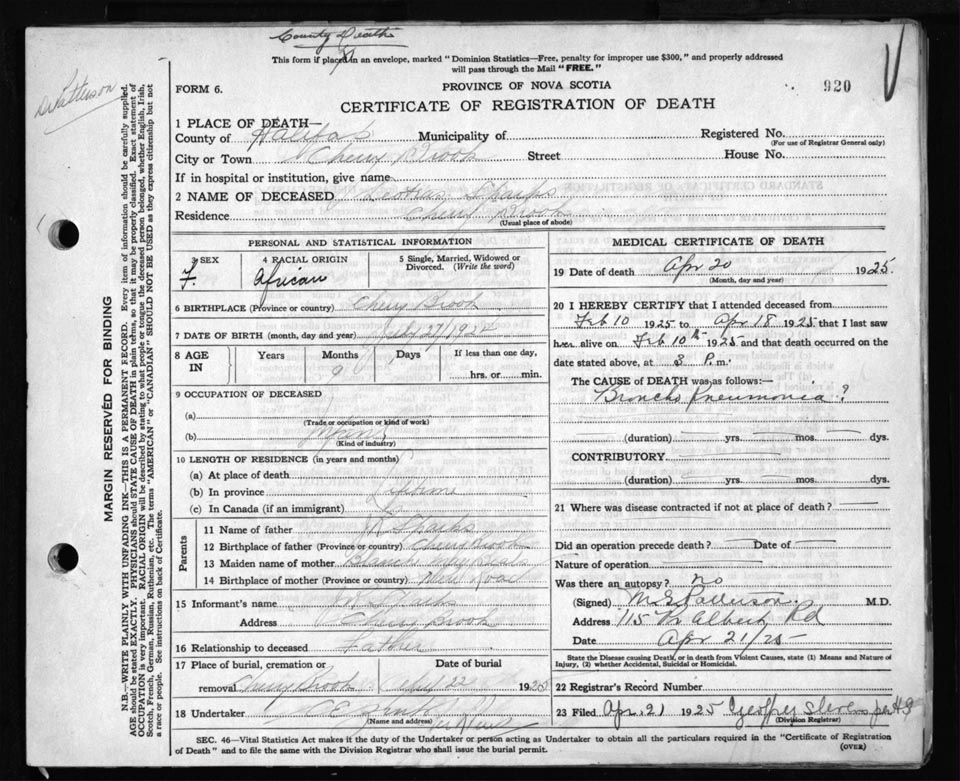 County Deaths
This form if placed in an envelope, marked "Dominion Statistics—Free, penalty for improper use $300," and properly addressed
will pass through the Mail "FREE."
Dr Patterson
920
FORM 6.
PROVINCE OF NOVA SCOTIA
CERTIFICATE OF REGISTRATION OF DEATH
1 PLACE OF DEATH—
County of Halifax Municipality of Registered No.
(For use of Registrar General only)
City or Town Cherry Brook Street House No.
If in hospital or institution, give name
2 NAME OF DECEASED Sparks
Residence Cherry Brook
(Usual place of abode)
PERSONAL AND STATISTICAL INFORMATION
3 SEX 4 RACIAL ORIGIN 5 Single, Married, Widowed or
Divorced. (Write the word)
F. African
6 BIRTHPLACE (Province or country) Cherry Brook
7 DATE OF BIRTH (month, day and year) July 27/1924
8 AGE IN Years Months Days If less than one day,
9
hrs. or min.
9 OCCUPATION OF DECEASED
(a)
(Trade or occupation or kind of work)
(b) Infant
(Kind of industry)
10 LENGTH OF RESIDENCE (in years and months)
(a) At place of death
(b) In province Lifetime
(c) In Canada (if an immigrant)
Parents
11 Name of father W Sparks
12 Birthplace of father (Province or country) Cherry Brook
13 Maiden name of mother
14 Birthplace of mother (Province or country) New Road
15 Informant's name W Sparks
Address Cherry Brook
16 Relationship to deceased Father
17 Place of burial, cremation or Date of burial
removal Cherry Brook April 22 1925
18 Undertaker
(Name and address)
MEDICAL CERTIFICATE OF DEATH
19 Date of death Apr 20 1925.
(Month, day and year)
20 I HEREBY CERTIFY that I attended deceased from
Feb 10 1925 to Apr 18 1925 that I last saw
her alive on Feb 10th 1925 and that death occurred on the
date stated above, at 3 P. m.
The CAUSE of DEATH was as follows:—
Broncho Pneumonia ?
(duration) yrs. mos. dys.
CONTRIBUTORY
(duration) yrs. mos. dys.
21 Where was disease contracted if not at place of death?
Did an operation precede death? Date of
Nature of operation
Was there an autopsy? no
(Signed) M.D.
Address 115 Albert Rd
Date Apr 21/25
State the Disease causing Death, or in death from Violent Causes, state (1) Means and Nature of
Injury, (2) whether Accidental, Suicidal or Homicidal.
22 Registrar's Record Number
23 Filed Apr. 21 1925 Geoffrey Stevens per HS
(Division Registrar)
SEC. 46—Vital Statistics Act makes it the duty of the Undertaker or person acting as Undertaker to obtain all the particulars required in the "Certificate of Registration
of Death" and to file the same with the Division Registrar who shall issue the burial permit.
(OVER)
MARGIN RESERVED FOR BINDING
N.B.—WRITE PLAINLY WITH UNFADING INK—THIS IS A PERMANENT RECORD. Every item of information should be carefully supplied.
AGE should be stated EXACTLY. PHYSICIANS should STATE CAUSE OF DEATH in plain terms, so that it may be properly classified. Exact statement of
OCCUPATION is very important. RACIAL ORIGIN will be described by stating to what people or tongue the deceased person belonged, whether English, Irish,
Scotch, French, German, Russian, Ruthenian, etc. The terms "AMERICAN" or "CANADIAN" SHOULD NOT BE USED as they express citizenship but not
a race or people. See instructions on back of Certificate.